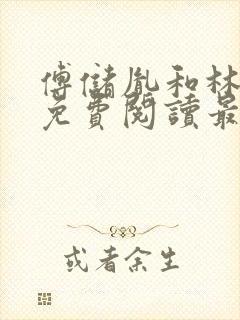 傅儲胤和林
免費閱讀最
或者余生